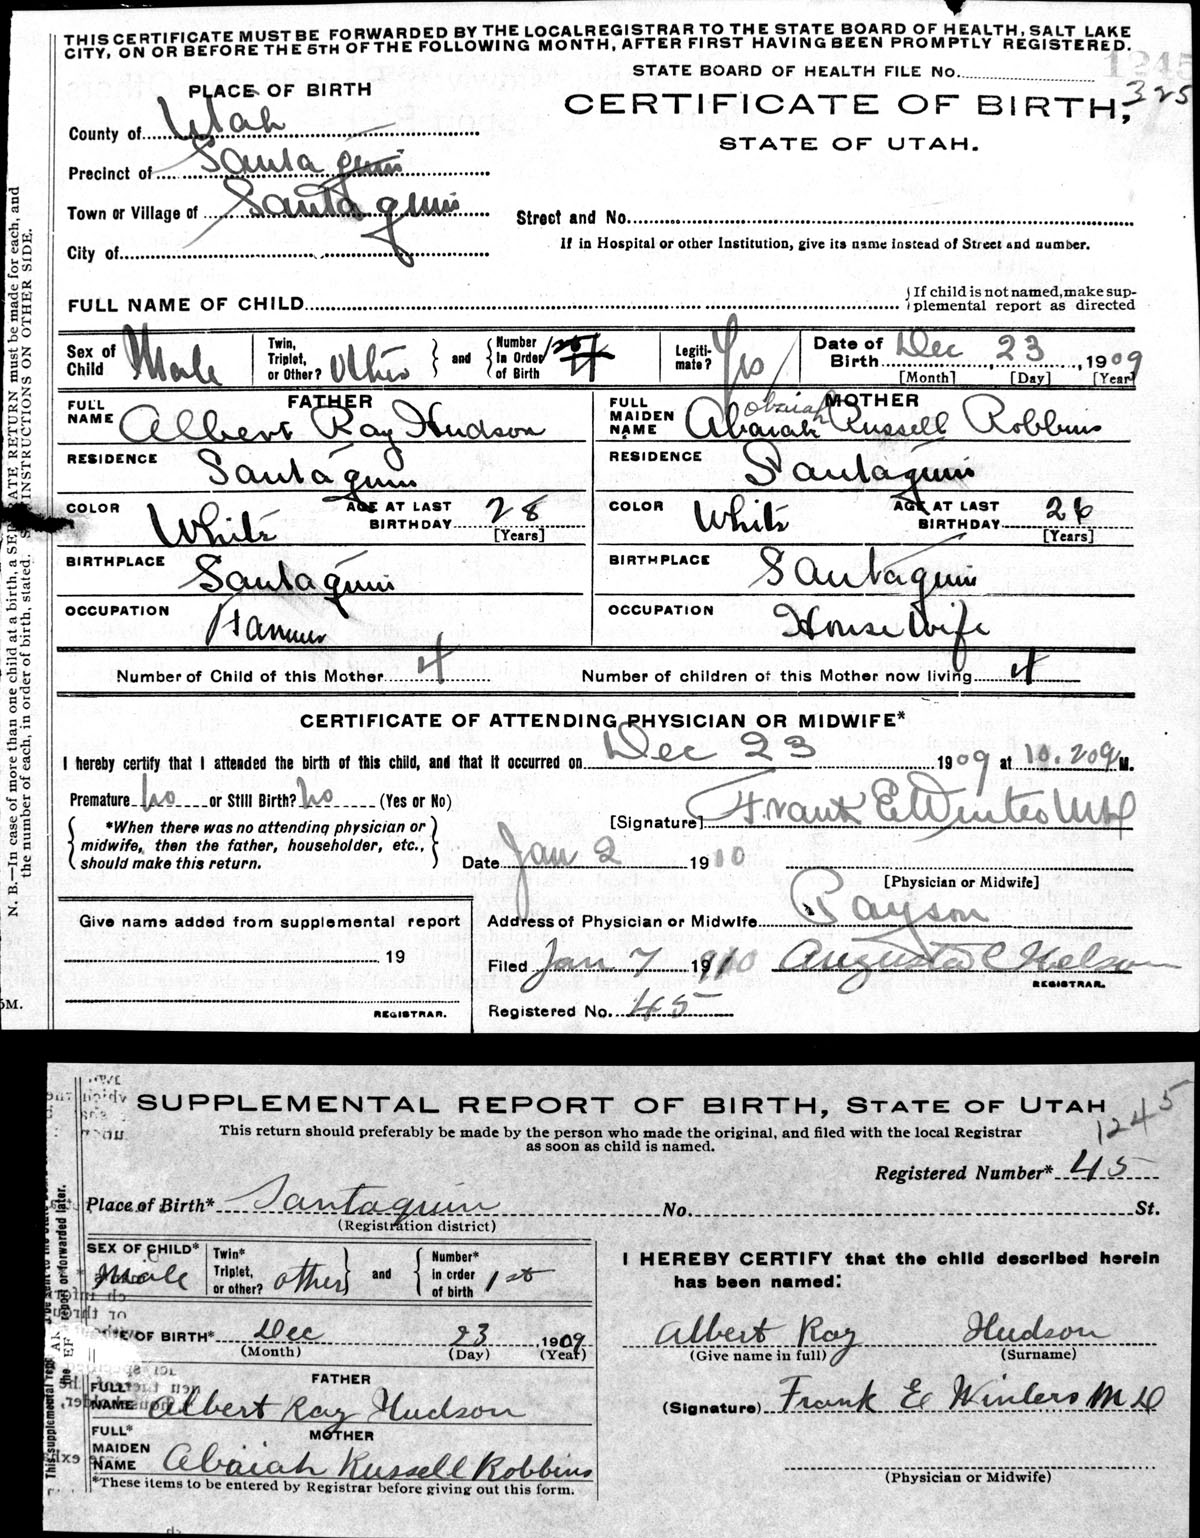 THIS CERTIFICATE MUST BE FORWARDED BY THE LOCALREGISTRAR TO THE STATE BOARD OF HEALTH, SALT LAKE
CITY, ON OR BEFORE THE 5TH OF THE FOLLOWING MONTH, AFTER FIRST HAVING BEEN PROMPTLY REGISTERED.
STATE BOARD OF HEALTH FILE No. 1245
325
PLACE OF BIRTH
CERTIFICATE OF BIRTH,
STATE OF UTAH.
County of Utah
Precinct of Santaquin
Town or Village of Santaquin
Street and No.
City of
If in Hospital or other Institution, give its name instead of Street and number.
FULL NAME OF CHILD
If child is not named, make sup-
plemental report as directed
Sex of Child Male
Twin, Triplet, or Other? Other and Number In Order of Birth 1st
Legiti-mate? Yes
Date of Birth Dec 23, 1909
[Month] [Day] [Year]
FATHER
FULL NAME Albert Ray Hudson
RESIDENCE Santaquin
COLOR White AGE AT LAST BIRTHDAY 28
[Years]
BIRTHPLACE Santaquin
OCCUPATION Farmer
MOTHER
FULL MAIDEN NAME Abaiah Russell Robbins
RESIDENCE Santaquin
COLOR White AGE AT LAST BIRTHDAY 26
[Years]
BIRTHPLACE Santaquin
OCCUPATION House Wife
Number of Child of this Mother 4 Number of children of this Mother now living 4
CERTIFICATE OF ATTENDING PHYSICIAN OR MIDWIFE*
I hereby certify that I attended the birth of this child, and that it occurred on Dec 23 1909 at 10.20 a M.
Premature no or Still Birth? no (Yes or No)
*When there was no attending physician or
midwife, then the father, householder, etc.,
should make this return.
[Signature] Frank E Winters MD
Date Jan 2 1910
[Physician or Midwife]
Address of Physician or Midwife Payson
Filed Jan 7 1910 Augusta C Nelson
REGISTRAR.
Registered No. 45
Give name added from supplemental report
19
REGISTRAR.
5M.
N. B.—In case of more than one child at a birth, a SEPARATE RETURN must be made for each, and
the number of each, in order of birth, stated. INSTRUCTIONS ON OTHER SIDE.
SUPPLEMENTAL REPORT OF BIRTH, STATE OF UTAH
1245
This return should preferably be made by the person who made the original, and filed with the local Registrar
as soon as child is named.
Registered Number* 45
Place of Birth* Santaquin No. St.
(Registration district)
SEX OF CHILD* Male
Twin* Triplet, or other? other and Number* in order of birth 1st
DATE OF BIRTH* Dec 23, 1909
(Month) (Day) (Year)
FATHER
FULL* NAME Albert Ray Hudson
MOTHER
FULL* MAIDEN NAME Abaiah Russell Robbins
*These items to be entered by Registrar before giving out this form.
I HEREBY CERTIFY that the child described herein
has been named:
Albert Ray Hudson
(Give name in full) (Surname)
(Signature) Frank E Winters M D
(Physician or Midwife)